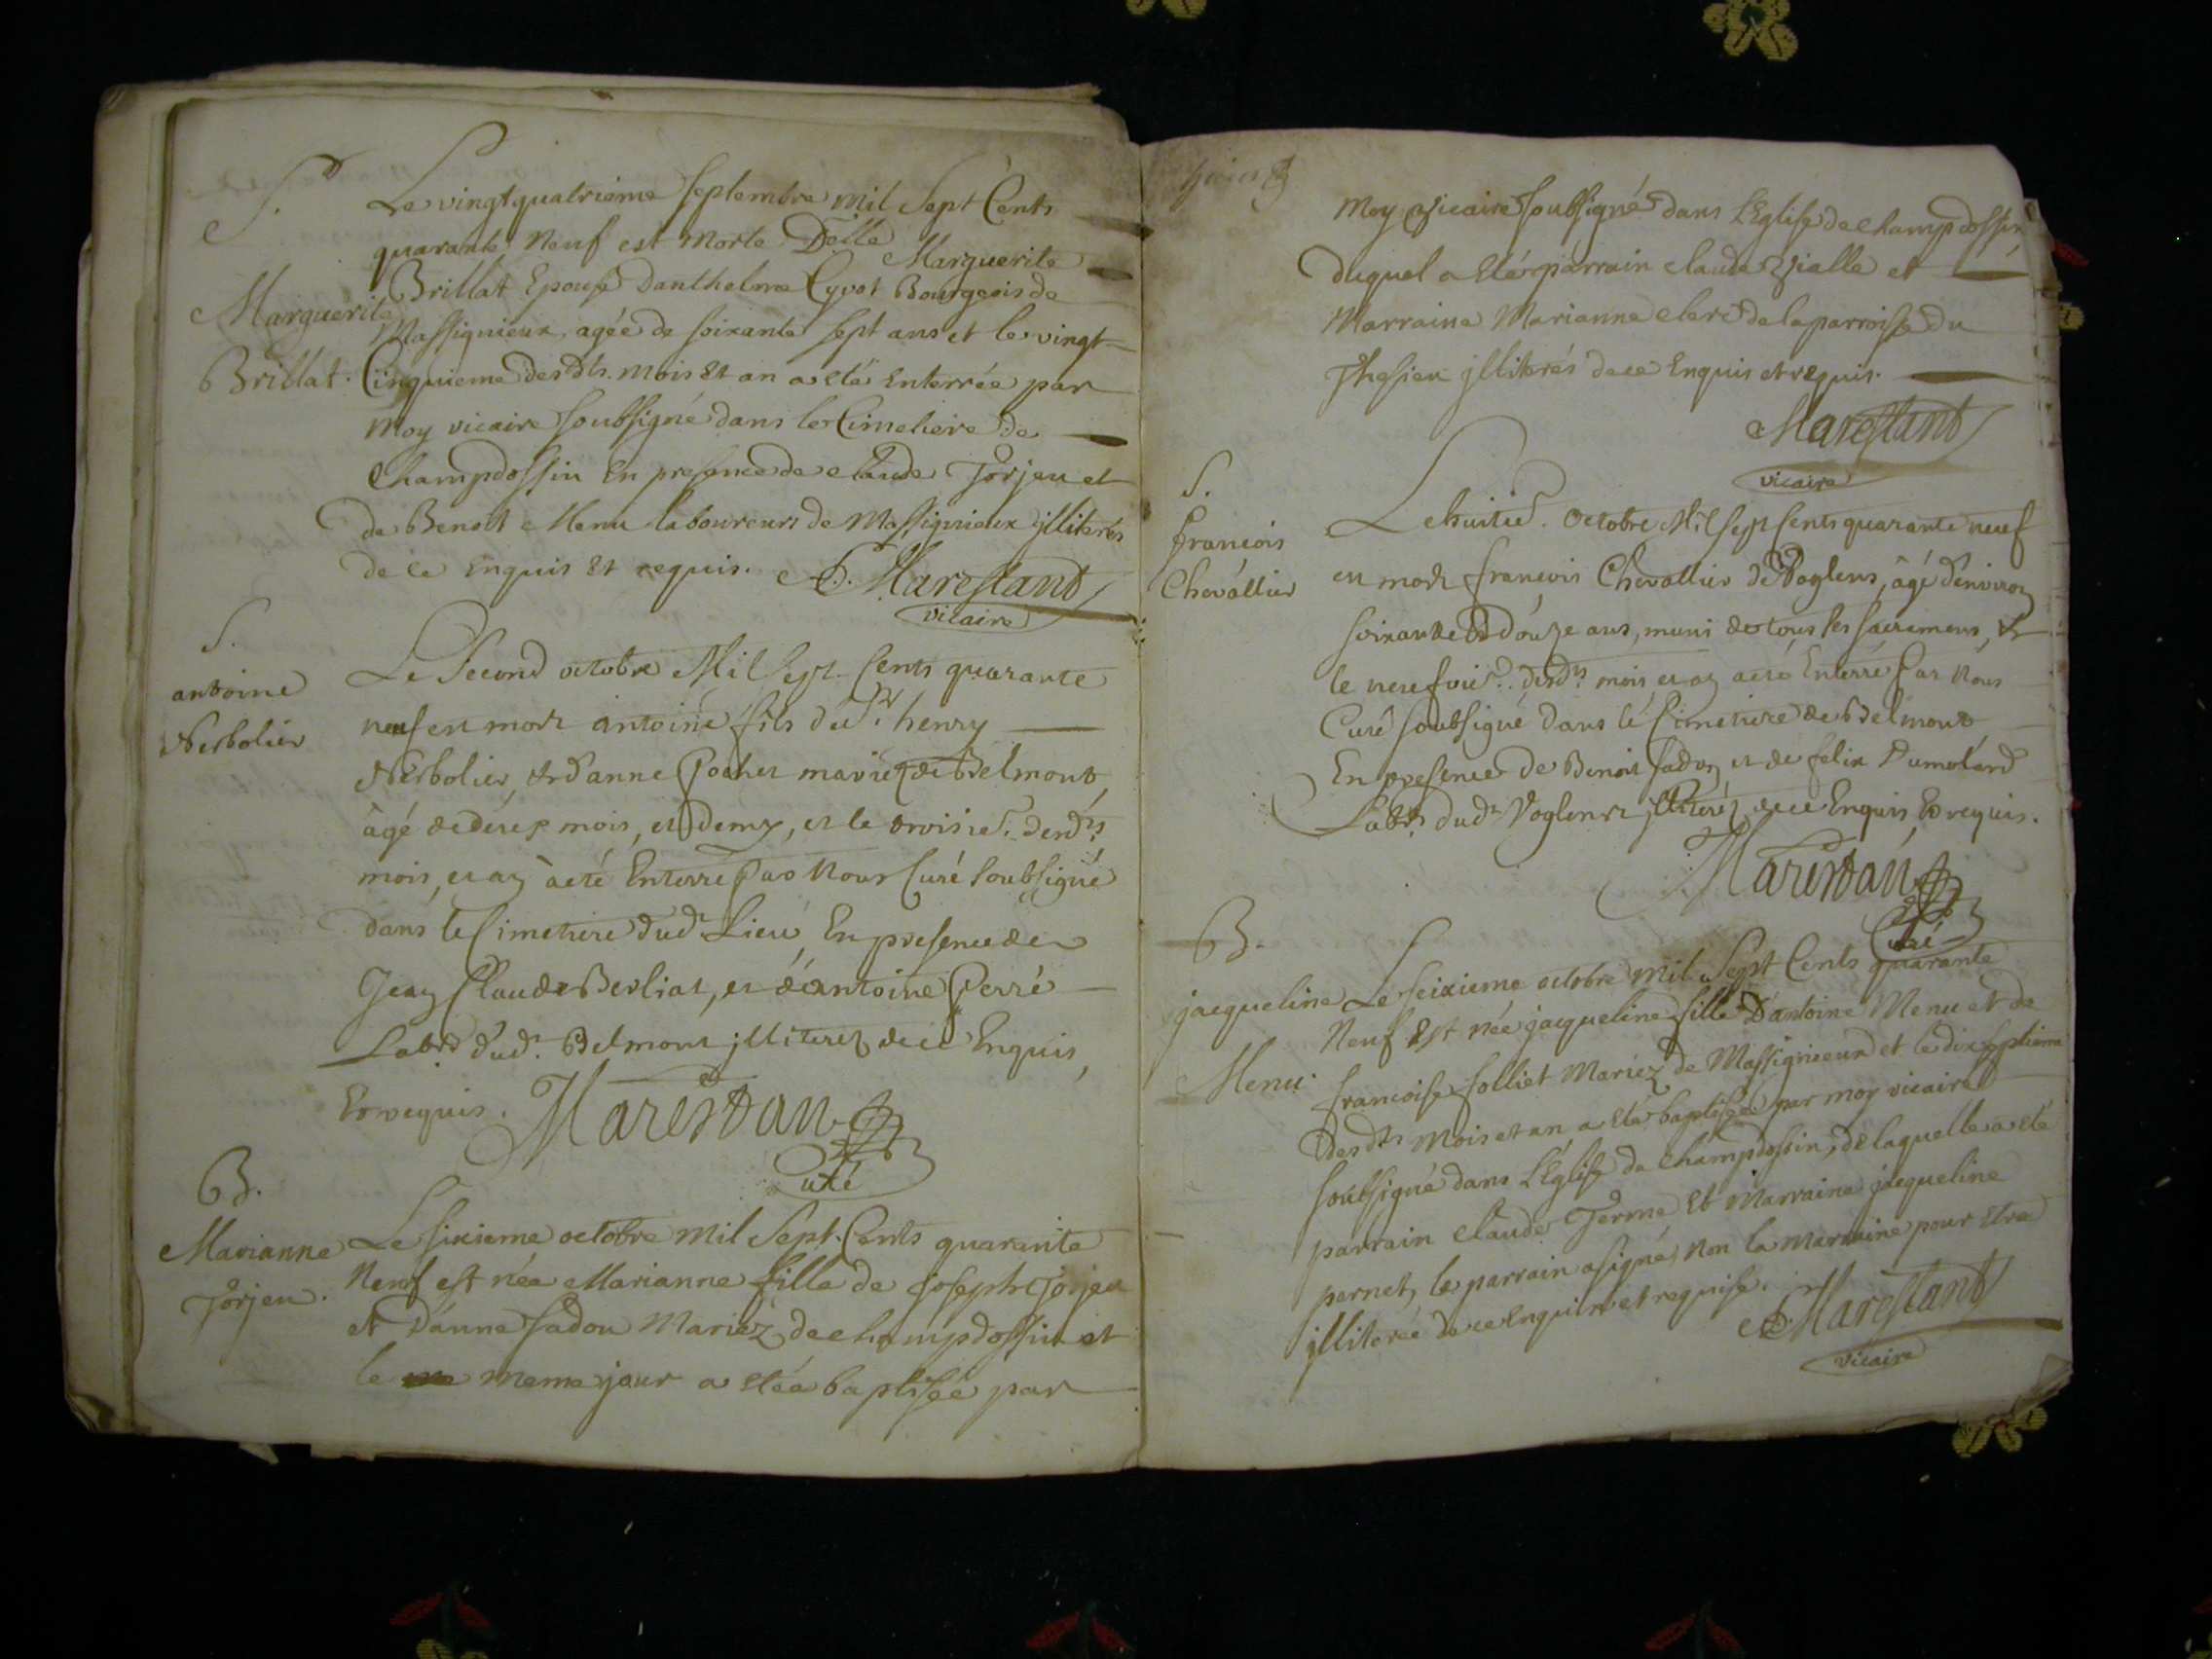 S.
Marguerite
Brillat.
Le vingt quatrieme septembre mil Sept Cents
quarante Neuf est Morte Delle Marguerite
Brillat Epouse Danthelme Cyvot Bourgeois de
Massignieux, agée de soixante sept ans et le vingt
Cinquieme desdts. mois Et an a eté Enterrée par
Moy vicaire soubsigné dans le Cimetiere de
Champdossin En presence de Claude Jorjeu et
de Benoit Menu laboureurs de Massignieux jlliterés
de ce Enquis Et requis. Marestant
vicaire
S.
antoine
Nerbolier
Le Second octobre Mil Sept Cents quarante
neuf est mort antoine fils du Sr. henry
Nerbolier, et d'anne Pochet mariez de Belmont,
âgé de deux mois, et demy, et le troisie. desdts
mois, et an a eté Enterré Par Nous Curé soubsigné
dans le Cimetiere dudt Lieu, En presence de
Jean Claude Berliat, et d'antoine Perré
Labrs dudt. Belmont jlliterez de ce Enquis,
Et requis. Marestan
Curé
B.
Marianne
Jorjeu.
Le sixieme octobre mil Sept Cents quarante
Neuf est née Marianne fille de joseph Jorjeu
et D'anne Sadon Mariez de champdossin et
le meme jour a etéé baptisée par
Moy Vicaire soubsigné dans L'Eglise de Champdossin,
Duquel a eté parrain claude Vialle et
Marraine Marianne clerc de la parroisse du
Thesieu jlliterés de ce Enquis et requis.
Marestant
vicaire
S.
françois
Chevallier
Le huitie. Octobre Mil sept Cents quarante neuf
est mort françois Chevallier de Voglens, âgé d'environ
soixante et douze ans, muni de tous ses sacremens, et
le neufvie. desdts mois et an a eté Enterré Par Nous
Curé soubsigné dans le Cimetiere de Belmont
En presence de Benoit Sadon et de felix Dumolard
Labrs dudt Voglens jlliterez de ce Enquis, Et requis.
Marestan
Curé
B.
jacqueline
Menu.
Le seixieme octobre mil Sept Cents quarante
Neuf Est née jacqueline fille D'antoine Menu et de
francoise folliet Mariez de Massignieux et le dix septieme
Desdts Mois et an a eté baptisée par moy vicaire
soubsigné dans L'Eglise de champdossin, de laquelle a eté
parrain claude Terme Et Marraine jacqueline
pernet, le parrain a signé, Non la marraine pour Etre
jlliterée de ce Enquise et requise.
Marestant
vicaire